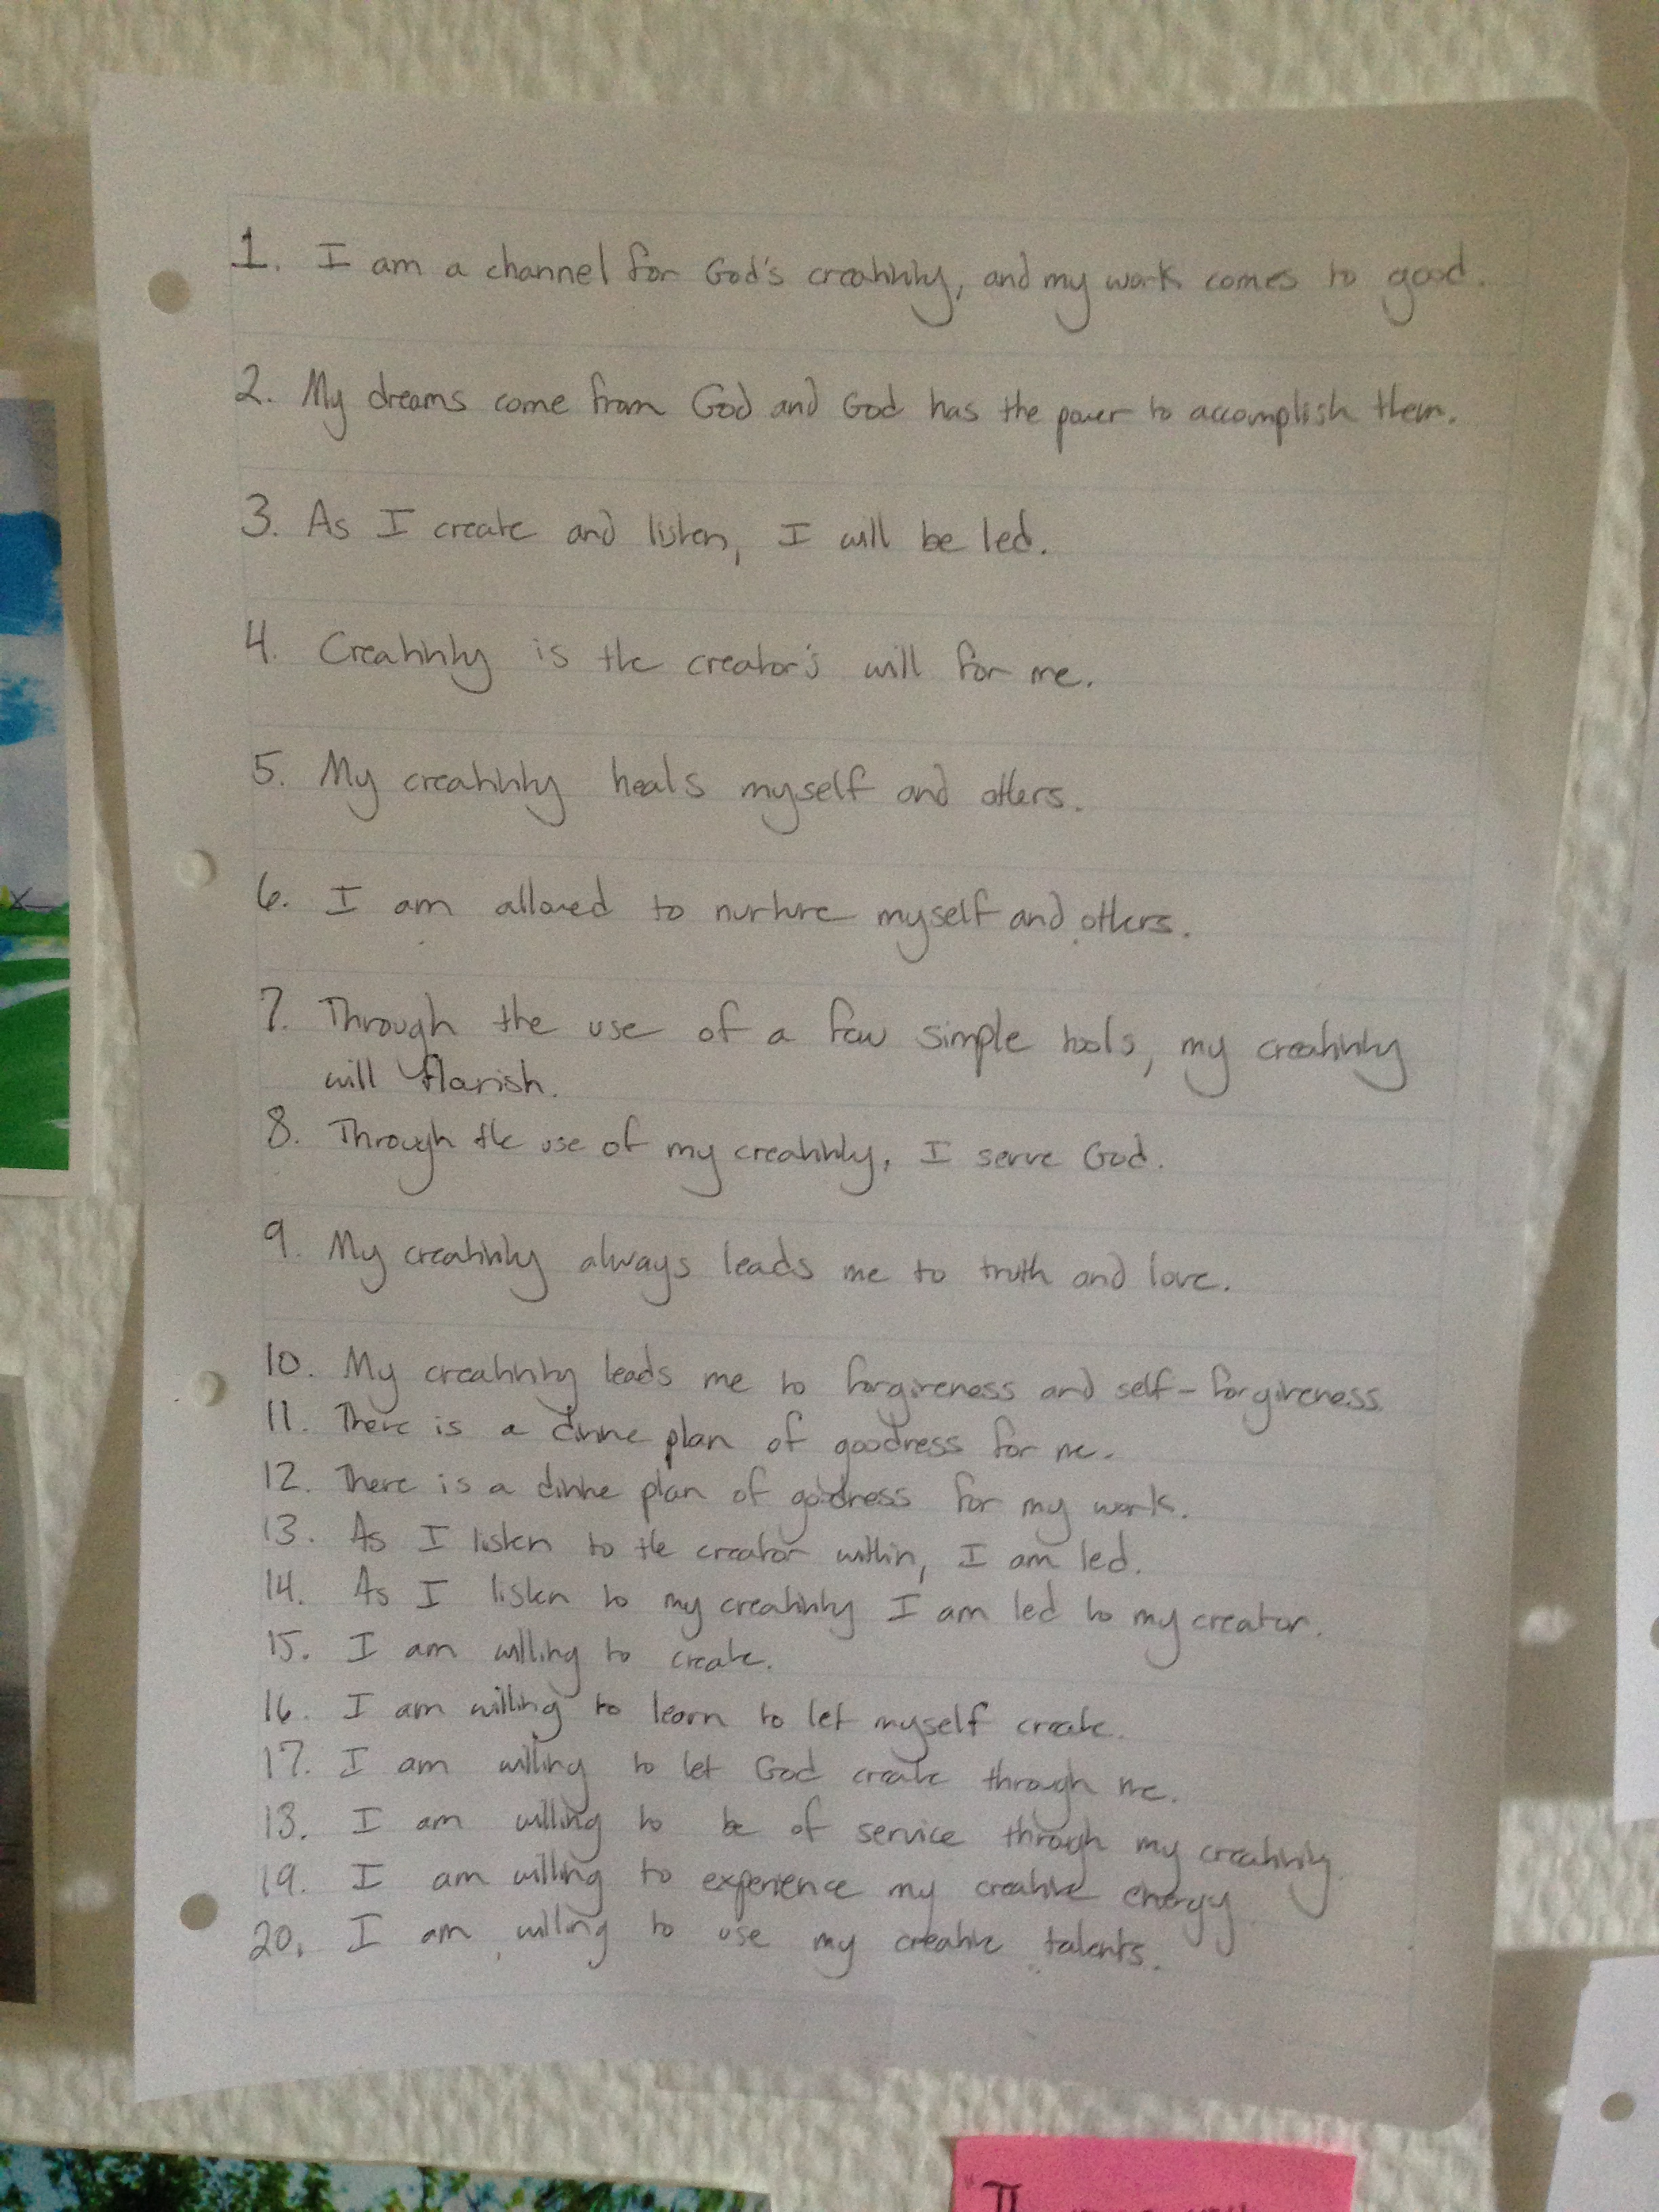 1. I am a channel for God's creativity, and my work comes to good.
2. My dreams come from God and God has the power to accomplish them.
3. As I create and listen, I will be led.
4. Creativity is the creator's will for me.
5. My creativity heals myself and others.
6. I am allowed to nurture myself and others.
7. Through the use of a few simple tools, my creativity
will flourish.
8. Through the use of my creativity, I serve God.
9. My creativity always leads me to truth and love.
10. My creativity leads me to forgiveness and self-forgiveness.
11. There is a divine plan of goodness for me.
12. There is a divine plan of goodness for my work.
13. As I listen to the creator within, I am led.
14. As I listen to my creativity I am led to my creator.
15. I am willing to create.
16. I am willing to learn to let myself create.
17. I am willing to let God create through me.
18. I am willing to be of service through my creativity.
19. I am willing to experience my creative energy.
20. I am willing to use my creative talents.